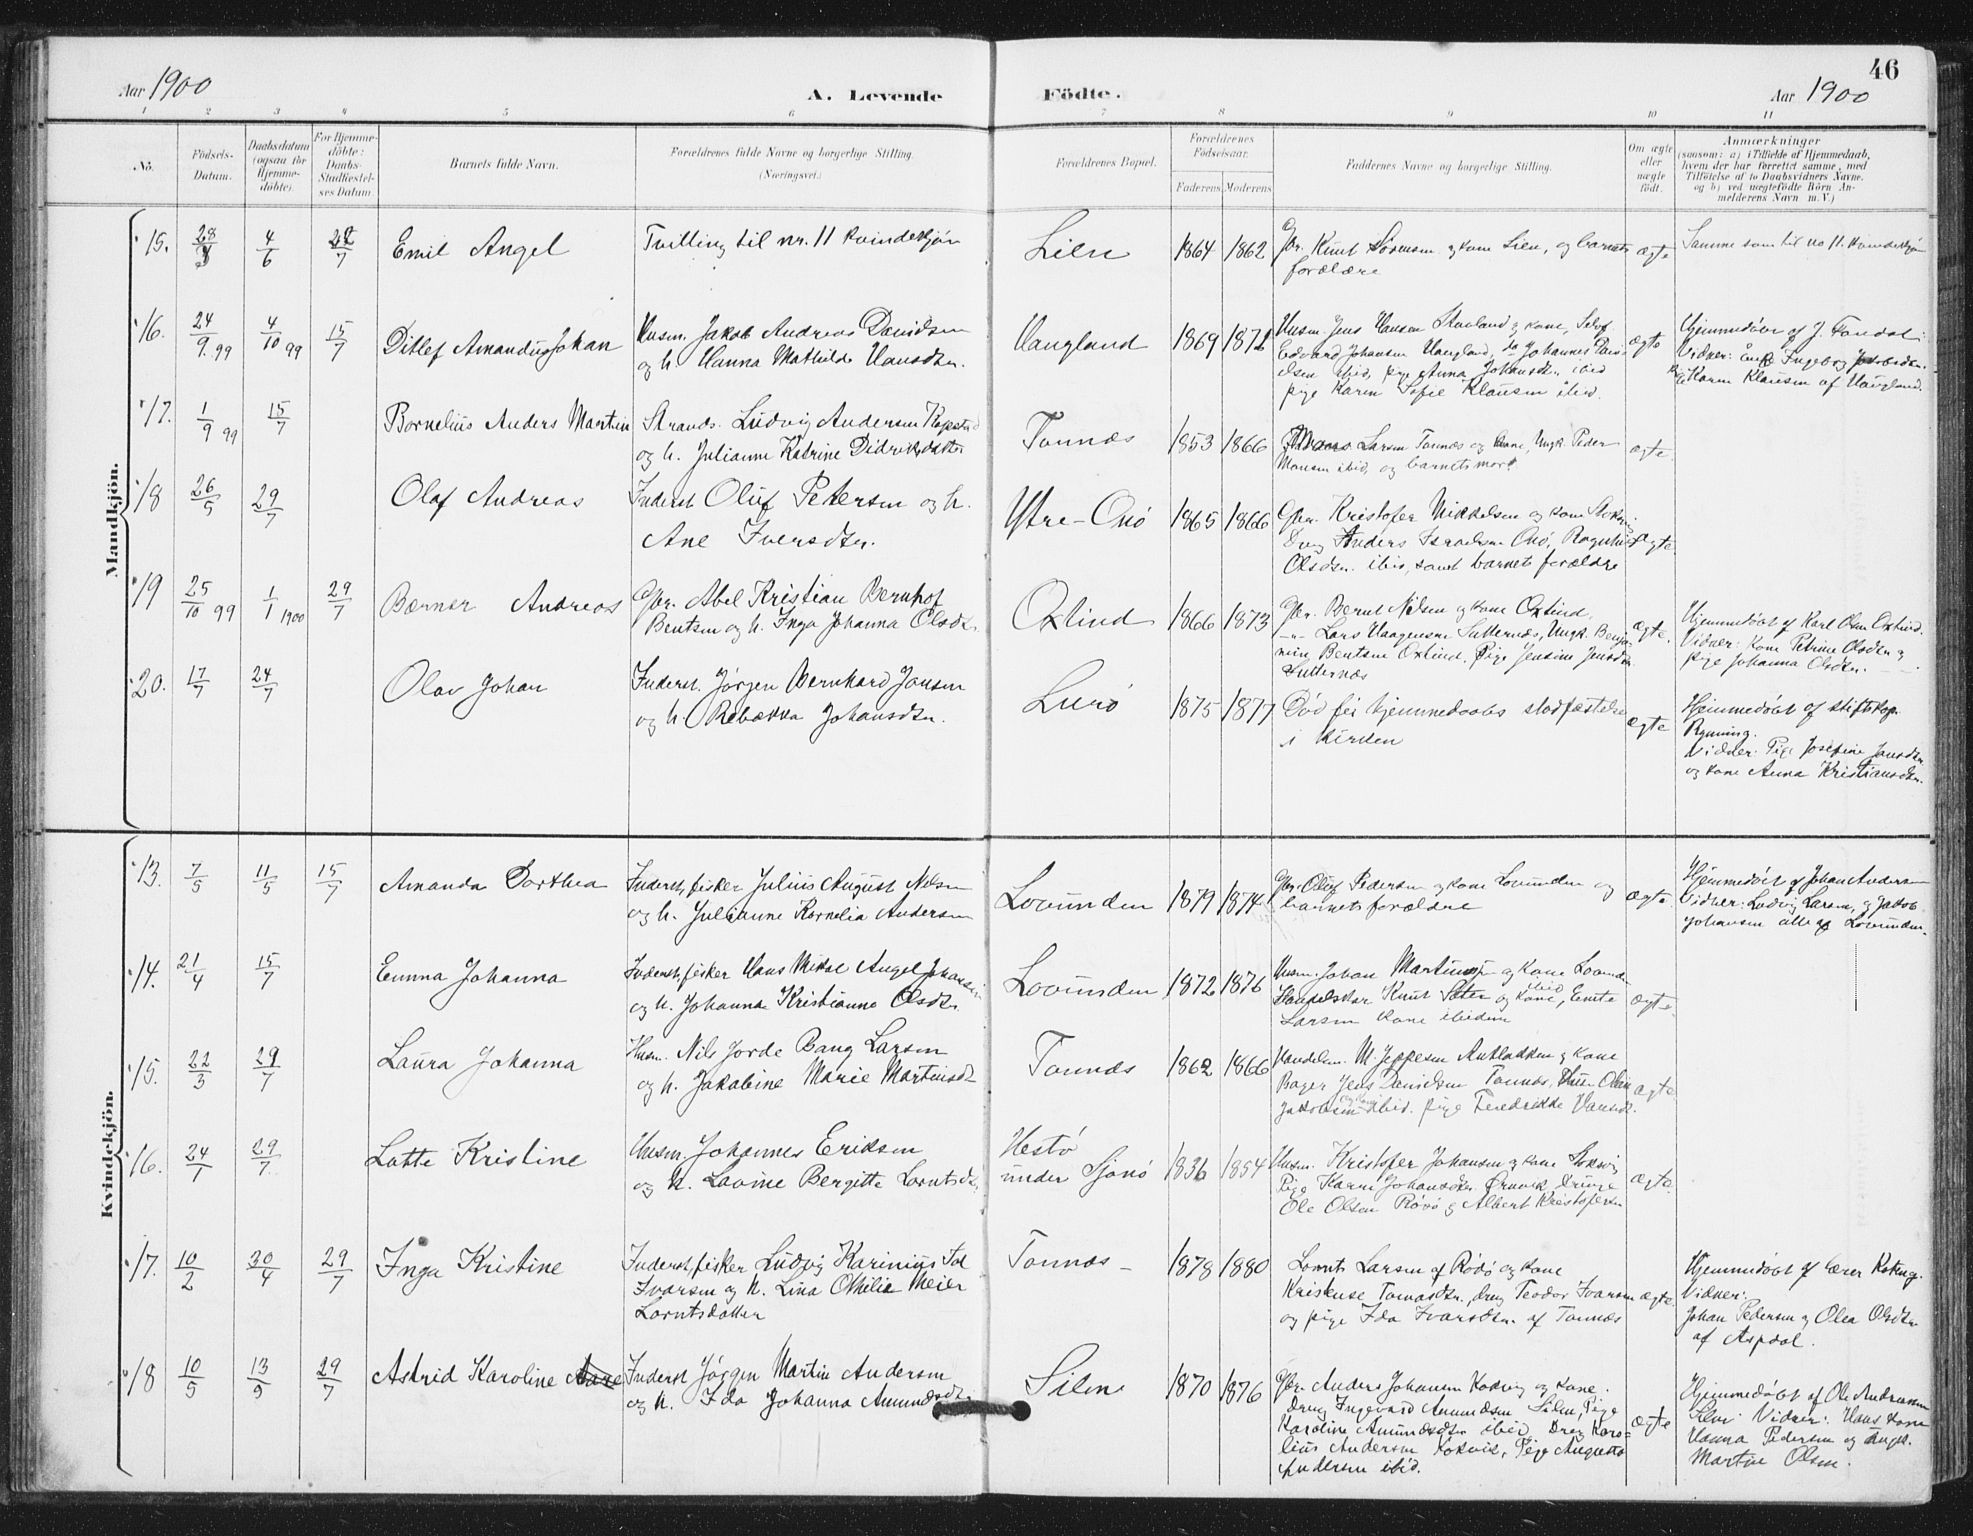 46
Aar 1900
A. Levende
Födte.
Aar 1900
1 2 3 4 5 6 7 8 9 10 11
No.
Födsels-
Datum.
Daabsdatum
(ogsaa for
Hjemme-
döbte).
For Hjemme-
döbte:
Daabs-
Stadfæstel-
ses Datum.
Barnets fulde Navn.
Forældrenes fulde Navne og borgerlige Stilling.
(Næringsvei.)
Forældrenes Bopæl.
Forældrenes
Födselsaar.
Faderens. Moderens
Faddernes Navne og borgerlige Stilling.
Om ægte
eller
uægte
födt.
Anmærkninger
(saasom: a) i Tilfælde af Hjemmedaab,
hvem der har forrettet samme, med
Tilföielse af to Daabsvidners Navne.
og b) ved uægtefödte Börn An-
melderens Navn m. V.)
Mandkjön.
15. 28/3 4/6 22/7 Emil Angel
Tvilling til nr. 11 kvindekjön
Silen 1864 1862
Gbr. Knut Sörensen og kone Silen, og barnets
forældre
ægte
Samme som til no 11. kvindekjön
16. 24/9 99 4/10 99 15/7 Ditlef Amandus Johan
Husm. Jakob Andreas Davidsen
og h. Hanna Mathilde Hansdtr.
Haugland 1869 1871
Husm. Jens Hansen Stavland og kone, Selvf.
Edvard Johansen Haugland, do Johannes Davi-
dsen ibid, pige Anna Johansdtr. ibid
pige Karen Sofie Klausen ibid.
ægte
Hjemmedöbt af J. Fondal.
Vidner: Enke Ingeborg Jakobsdtr.
Karen Klausen af Haugland.
17. 1/9 99 15/7 Bornelius Anders Martin
Strands. Ludvig Andersen
og h. Julianne Katrine Didriksdatter
Tonnæs 1853 1866
Larsen Tonnæs og kone, Ungk. Peder
Monsen ibid, og barnets mor
ægte
18 26/5 29/7 Olaf Andreas
Inderst Oluf Petersen og h.
Ane Iversdtr.
Ytre-Onö 1865 1866
Gbr. Kristofer Mikkelsen og kone Stokvig
Dreng Anders Israelsen Onö, Ragnhild
Olsdtr. ibid, samt barnets forældre
ægte
19 25/10 99 1/1 1900 29/7 Bærner Andreas
Gbr. Abel Kristian Bernhof
Bentsen og h. Inga Johanna Olsdtr.
Oxtind 1866 1873
Gbr. Bernt Nilsen og kone Oxtind,
-"- Lars Haagensen Sutternæs, Ungk. Benja-
min Bentsen Oxtind, Pige Jensine Jensdtr.
Sutternæs
ægte.
Hjemmedöbt af Karl Olsen Oxtind.
Vidner: Kone Petrine Olsdtr og
pige Johanna Olsdtr.
20. 17/7 24/7 Olav Johan
Inderst. Jörgen Bernhard Jonsen
og h. Rebækka Johansdtr.
Lurö 1875 1877
Död för hjemmedaabs stadfæstelse
i kirken
ægte
Hjemmedöbt af stiftskap.
Ryming.
Vidner: Pige Josefine Jonsdtr
og kone Anna Kristiansdtr.
Kvindekjön.
13. 7/5 11/5 15/7 Amanda Dorthea
Inderst, fisker Julius August Nilsen
og h. Julianne Kornelia Andersen
Lovunden 1879 1874
Gbr. Oluf Pedersen og kone Lovunden og
barnets forældre
ægte.
Hjemmedöbt af Johan Andersen
Vidner: Ludvig Larsen, og Jakob
Johansen alle af Lovunden.
14. 21/4 15/7 Emma Johanna
Inderst, fisker Hans Mikal Angel Johansen
og h. Johanna Kristianne Olsdtr.
Lovunden 1872 1876
Husm. Johan Martinussen og Kone Lovunden
Handelskar Knut Sæter og kone ibid, Enke
Larsen kone ibidem
ægte
15. 22/3 29/7 Laura Johanna
Husm. Nils Jorde Bang Larsen
og h. Jakobine Marie Martinsdtr
Tonnæs 1862 1866
Handelsm. M. Jeppesen og kone
Bager Jens Danielsen Tonnæs,
Jakobsen ibid. pige Fredrikke Hansdtr.
ægte.
16. 24/7 29/7 Lotte Kristine
Husm. Johannes Eriksen
og h. Lovine Bergitte Lorntsdtr.
Hestö
under Sjonö 1836 1854
Husm. Kristofer Johansen og kone Stokvig
Pige Karen Johansdtr. Örnvik, Drenge
Ole Olsen Rövö og Albert Kristofersen
ægte.
17. 10/2 30/4 29/7 Inga Kristine
Inderst, fisker Ludvig Karinius Fol
Ivarsen og h. Lina Othilie Meier
Lorntsdatter
Tonnæs 1878 1880
Lornts Larsen af Rödö og kone
Kriskense Tomasdtr., dreng Teodor Ivarsen
og pige Ida Ivarsdtr. af Tonnæs
ægte.
Hjemmedöbt af lærer Koteng.
Vidner:
Johan Pedersen og Olea Olsdtr
af Aspdal.
18 10/5 13/9 29/7 Astrid Karoline
Inderst Jörgen Martin Andersen
og h. Ida Johanna Amundsdtr
Silen 1870 1876
Gbr. Anders Johansen Kodvig og kone.
Dreng Ingevard Amundsen Silen, Pige
Karoline Amundsdtr ibid, Dreng Karo-
lius Andersen Kokvik, Pige Augusta
Andersen ibid.
ægte
Hjemmedöbt af Ole Andreassen
Silen Vidner: Hans kone
Hanna Pedersen og Ungk.
Martin Olsen.